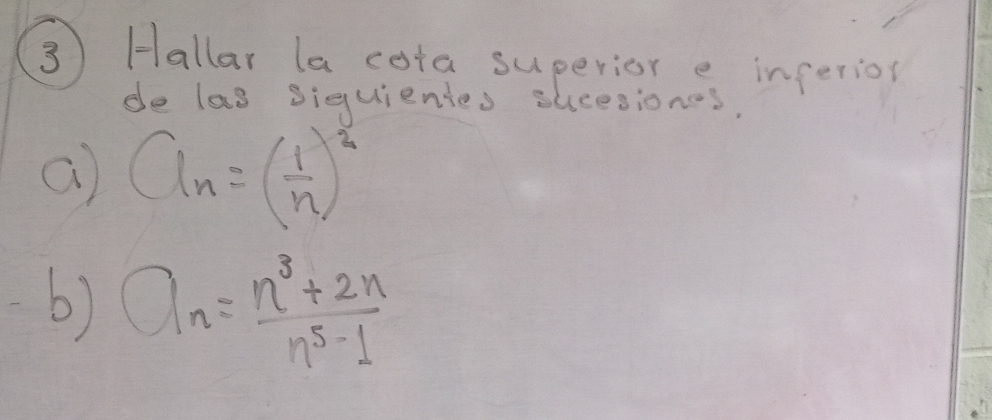 ③ Hallar la cota superior e inferior
de las siguientes sucesiones.
a) an = (1/n)²
b) an = n³ + 2n / n⁵ - 1